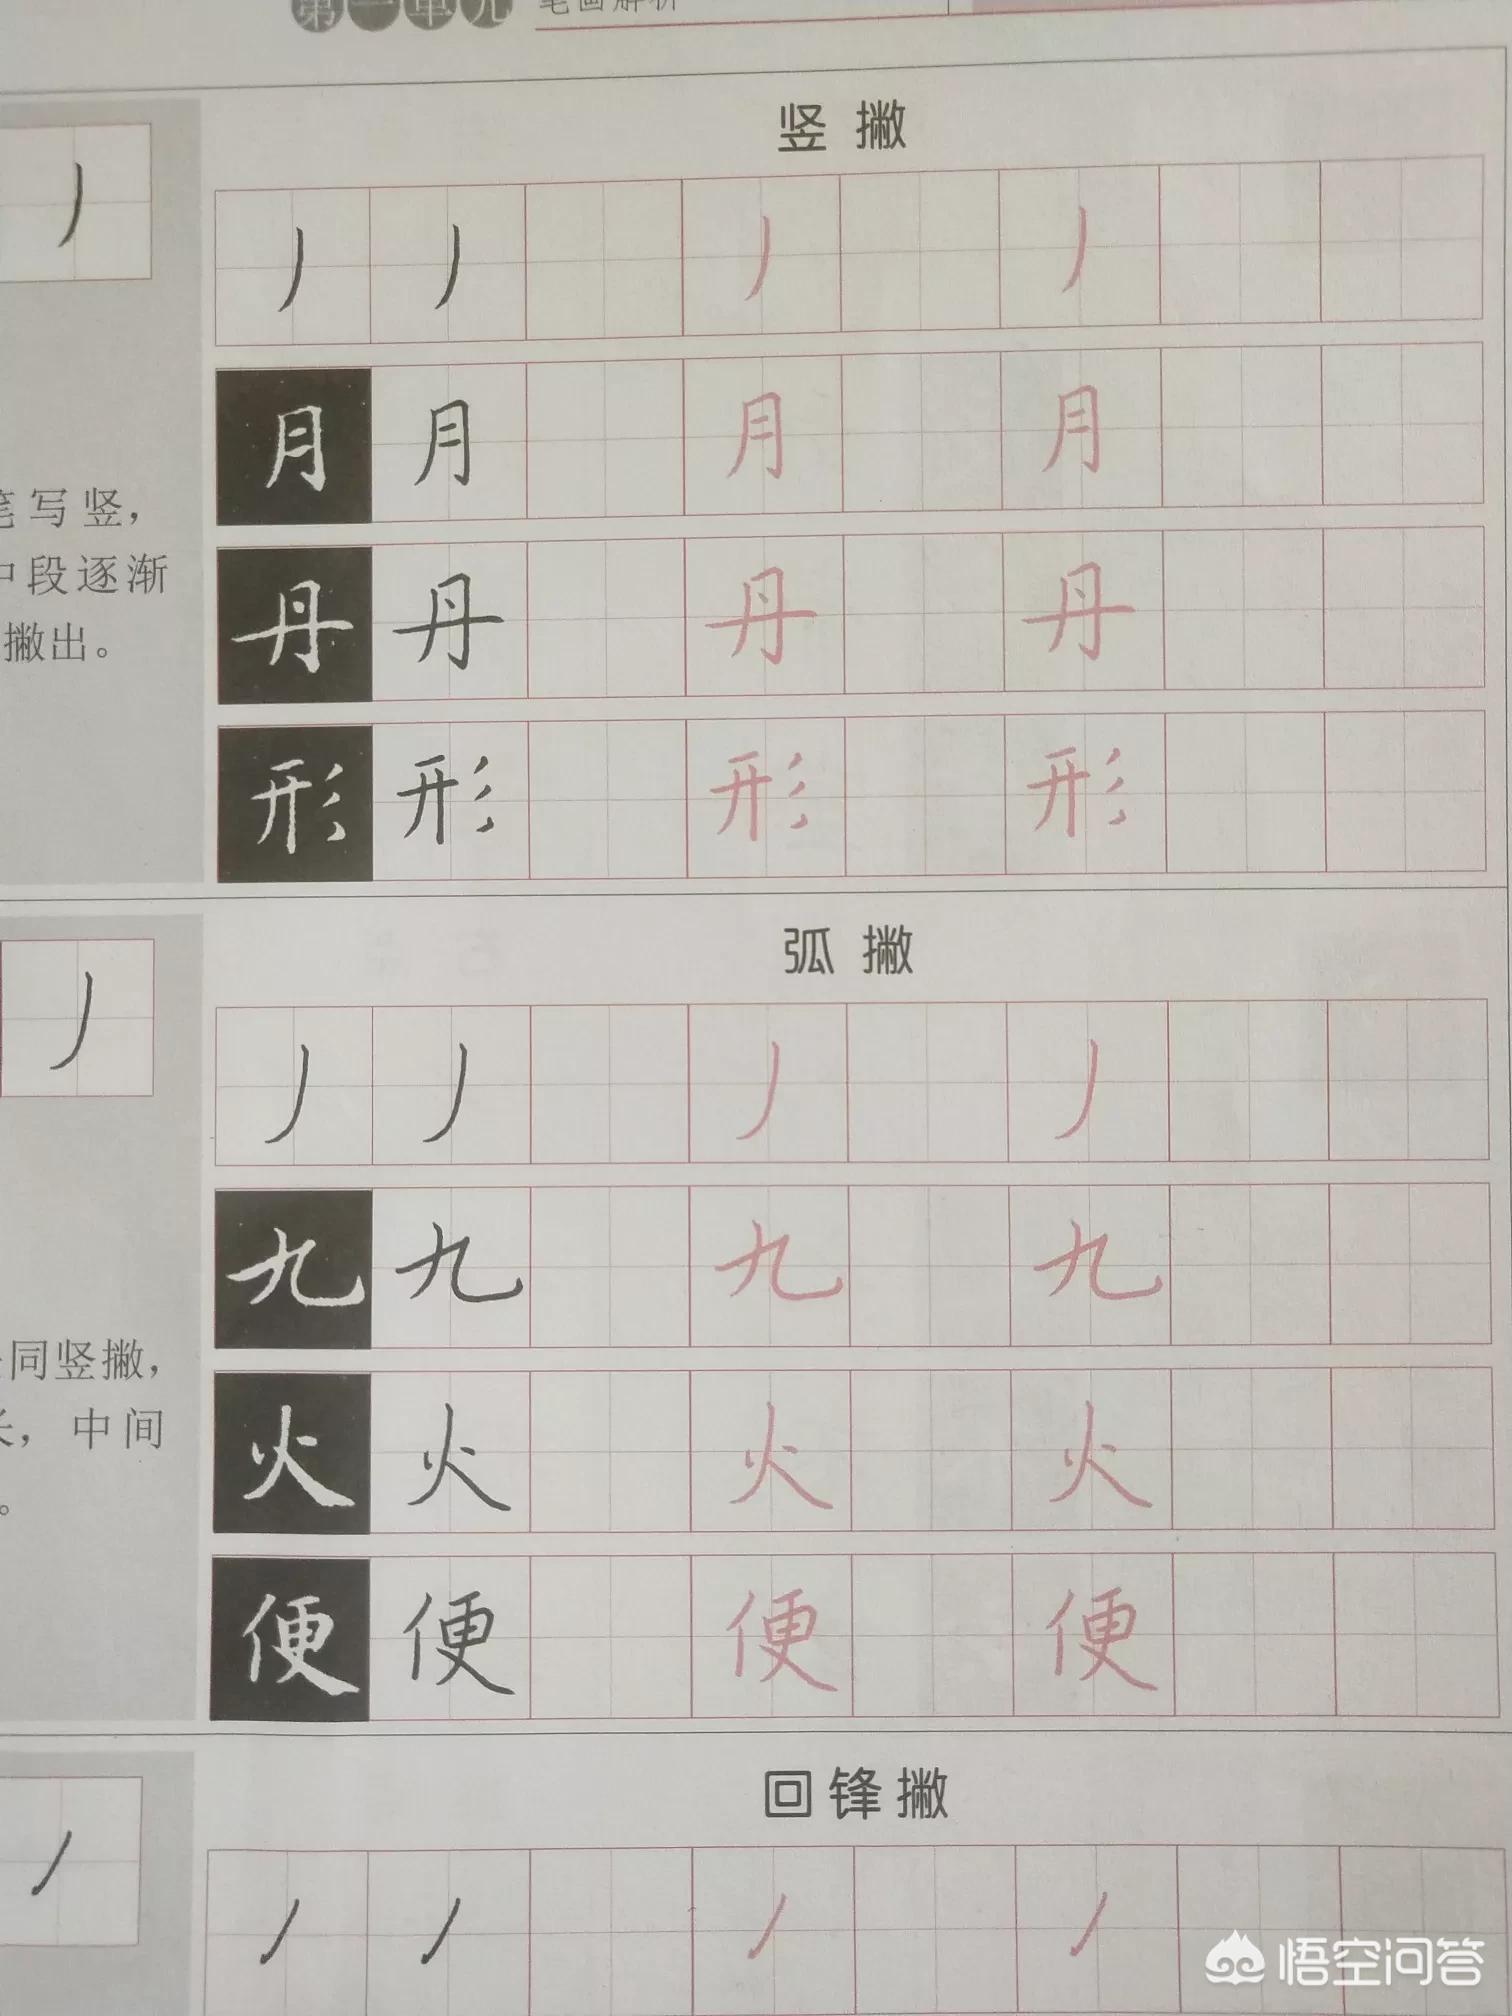 第一单元 笔画解析
竖撇
丿 丿 丿 丿 丿
月 月 月 月
笔写竖，
中段逐渐
撇出。
丹 丹 丹 丹
形 形 形 形
弧撇
丿 丿 丿 丿 丿
九 九 九 九
同竖撇，
长，中间
。
火 火 火 火
便 便 便 便
回锋撇
丿 丿 丿 丿 丿
悟空问答